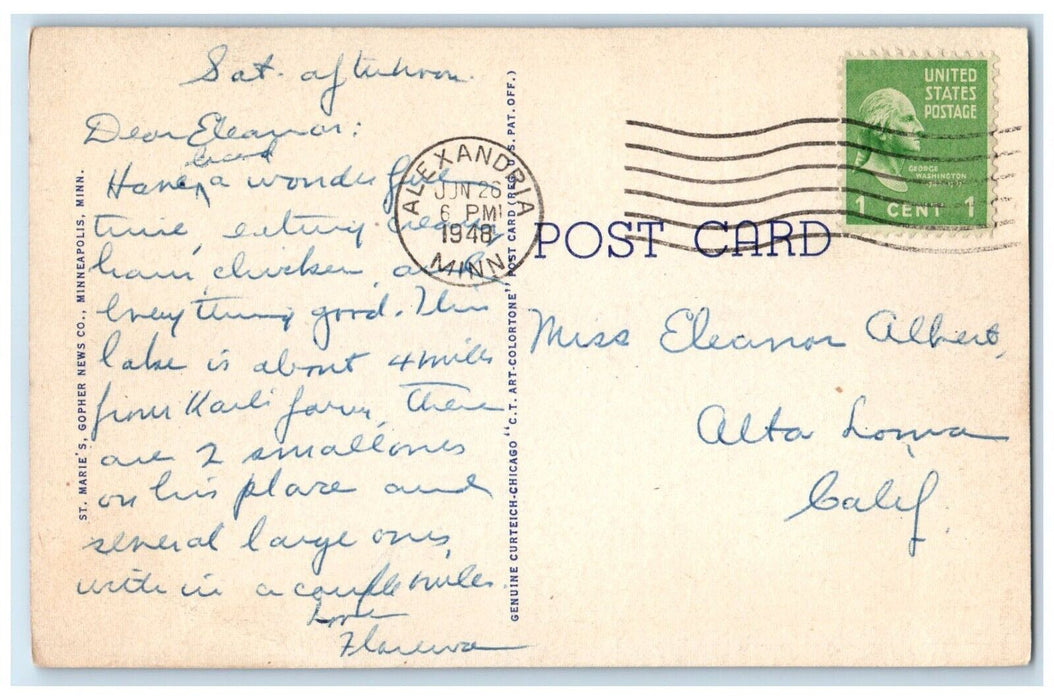 Sat. afternoon.
Dear Eleanor:
had
Have a wonderful
time, eating creamy
ham, chicken, and
everything good. This
lake is about 4 miles
from Karl's farm, there
are 2 small ones
on his place and
several large ones
with in a couple miles.
Love
ST. MARIE'S, GOPHER NEWS CO., MINNEAPOLIS, MINN.
GENUINE CURTEICH-CHICAGO "C.T. ART-COLORTONE" POST CARD (REG. U.S. PAT. OFF.)
ALEXANDRIA
JUN 26
6 PM
1948
MINN.
UNITED
STATES
POSTAGE
GEORGE
WASHINGTON
1 CENT 1
POST CARD
Miss Eleanor Albert,
Alta Loma
Calif.